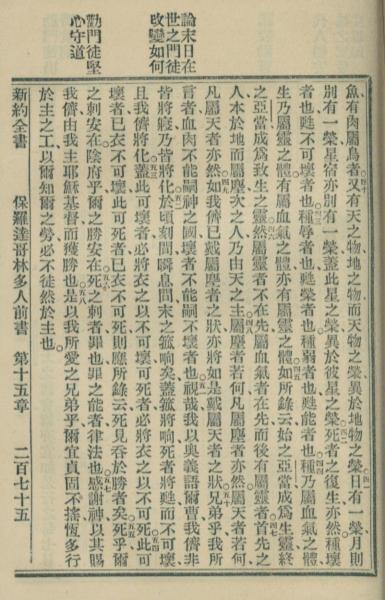 論末日在
世之門徒
改變如何
勸門徒堅
心守道
魚有肉屬鳥者又有天之物地之物而天物之榮異於地物之榮日有一榮月則
別有一榮星宿亦別有一榮蓋此星之榮異於彼星之榮死者之復生亦然種壞
者也甦不可壞者也種辱者也甦榮者也種弱者也甦能者也種乃屬血氣之體
生乃屬靈之體有屬血氣之體亦有屬靈之體如所錄云始之亞當成爲生靈終
之亞當成爲致生之靈然屬靈者不在先屬血氣者在先而後有屬靈者首先之
人本於地而屬塵次之人乃由天之主屬塵者若何凡屬塵者亦然屬天者若何
凡屬天者亦然如我儕已戴屬塵者之狀亦將如是戴屬天者之狀兄弟乎我所
言者血肉不能嗣神之國壞者不能嗣不壞者也視哉我以奧義語爾曹我儕非
皆將寢乃皆將化於頃刻間瞬息間末之箛響矣蓋箛將響死者將甦而不可壞
且我儕將化蓋此可壞者必將衣之以不可壞可死者必將衣之以不可死此可
壞者已衣不可壞此可死者已衣不可死則應所錄云死見吞於勝者矣死乎爾
之刺安在陰府乎爾之勝安在死之刺者罪也罪之能者律法也感謝神以其賜
我儕由我主耶穌基督而獲勝也是以我所愛之兄弟乎爾宜貞固不搖恆多行
於主之工以爾知爾之勞必不徒然於主也
新約全書 保羅達哥林多人前書 第十五章 二百七十五